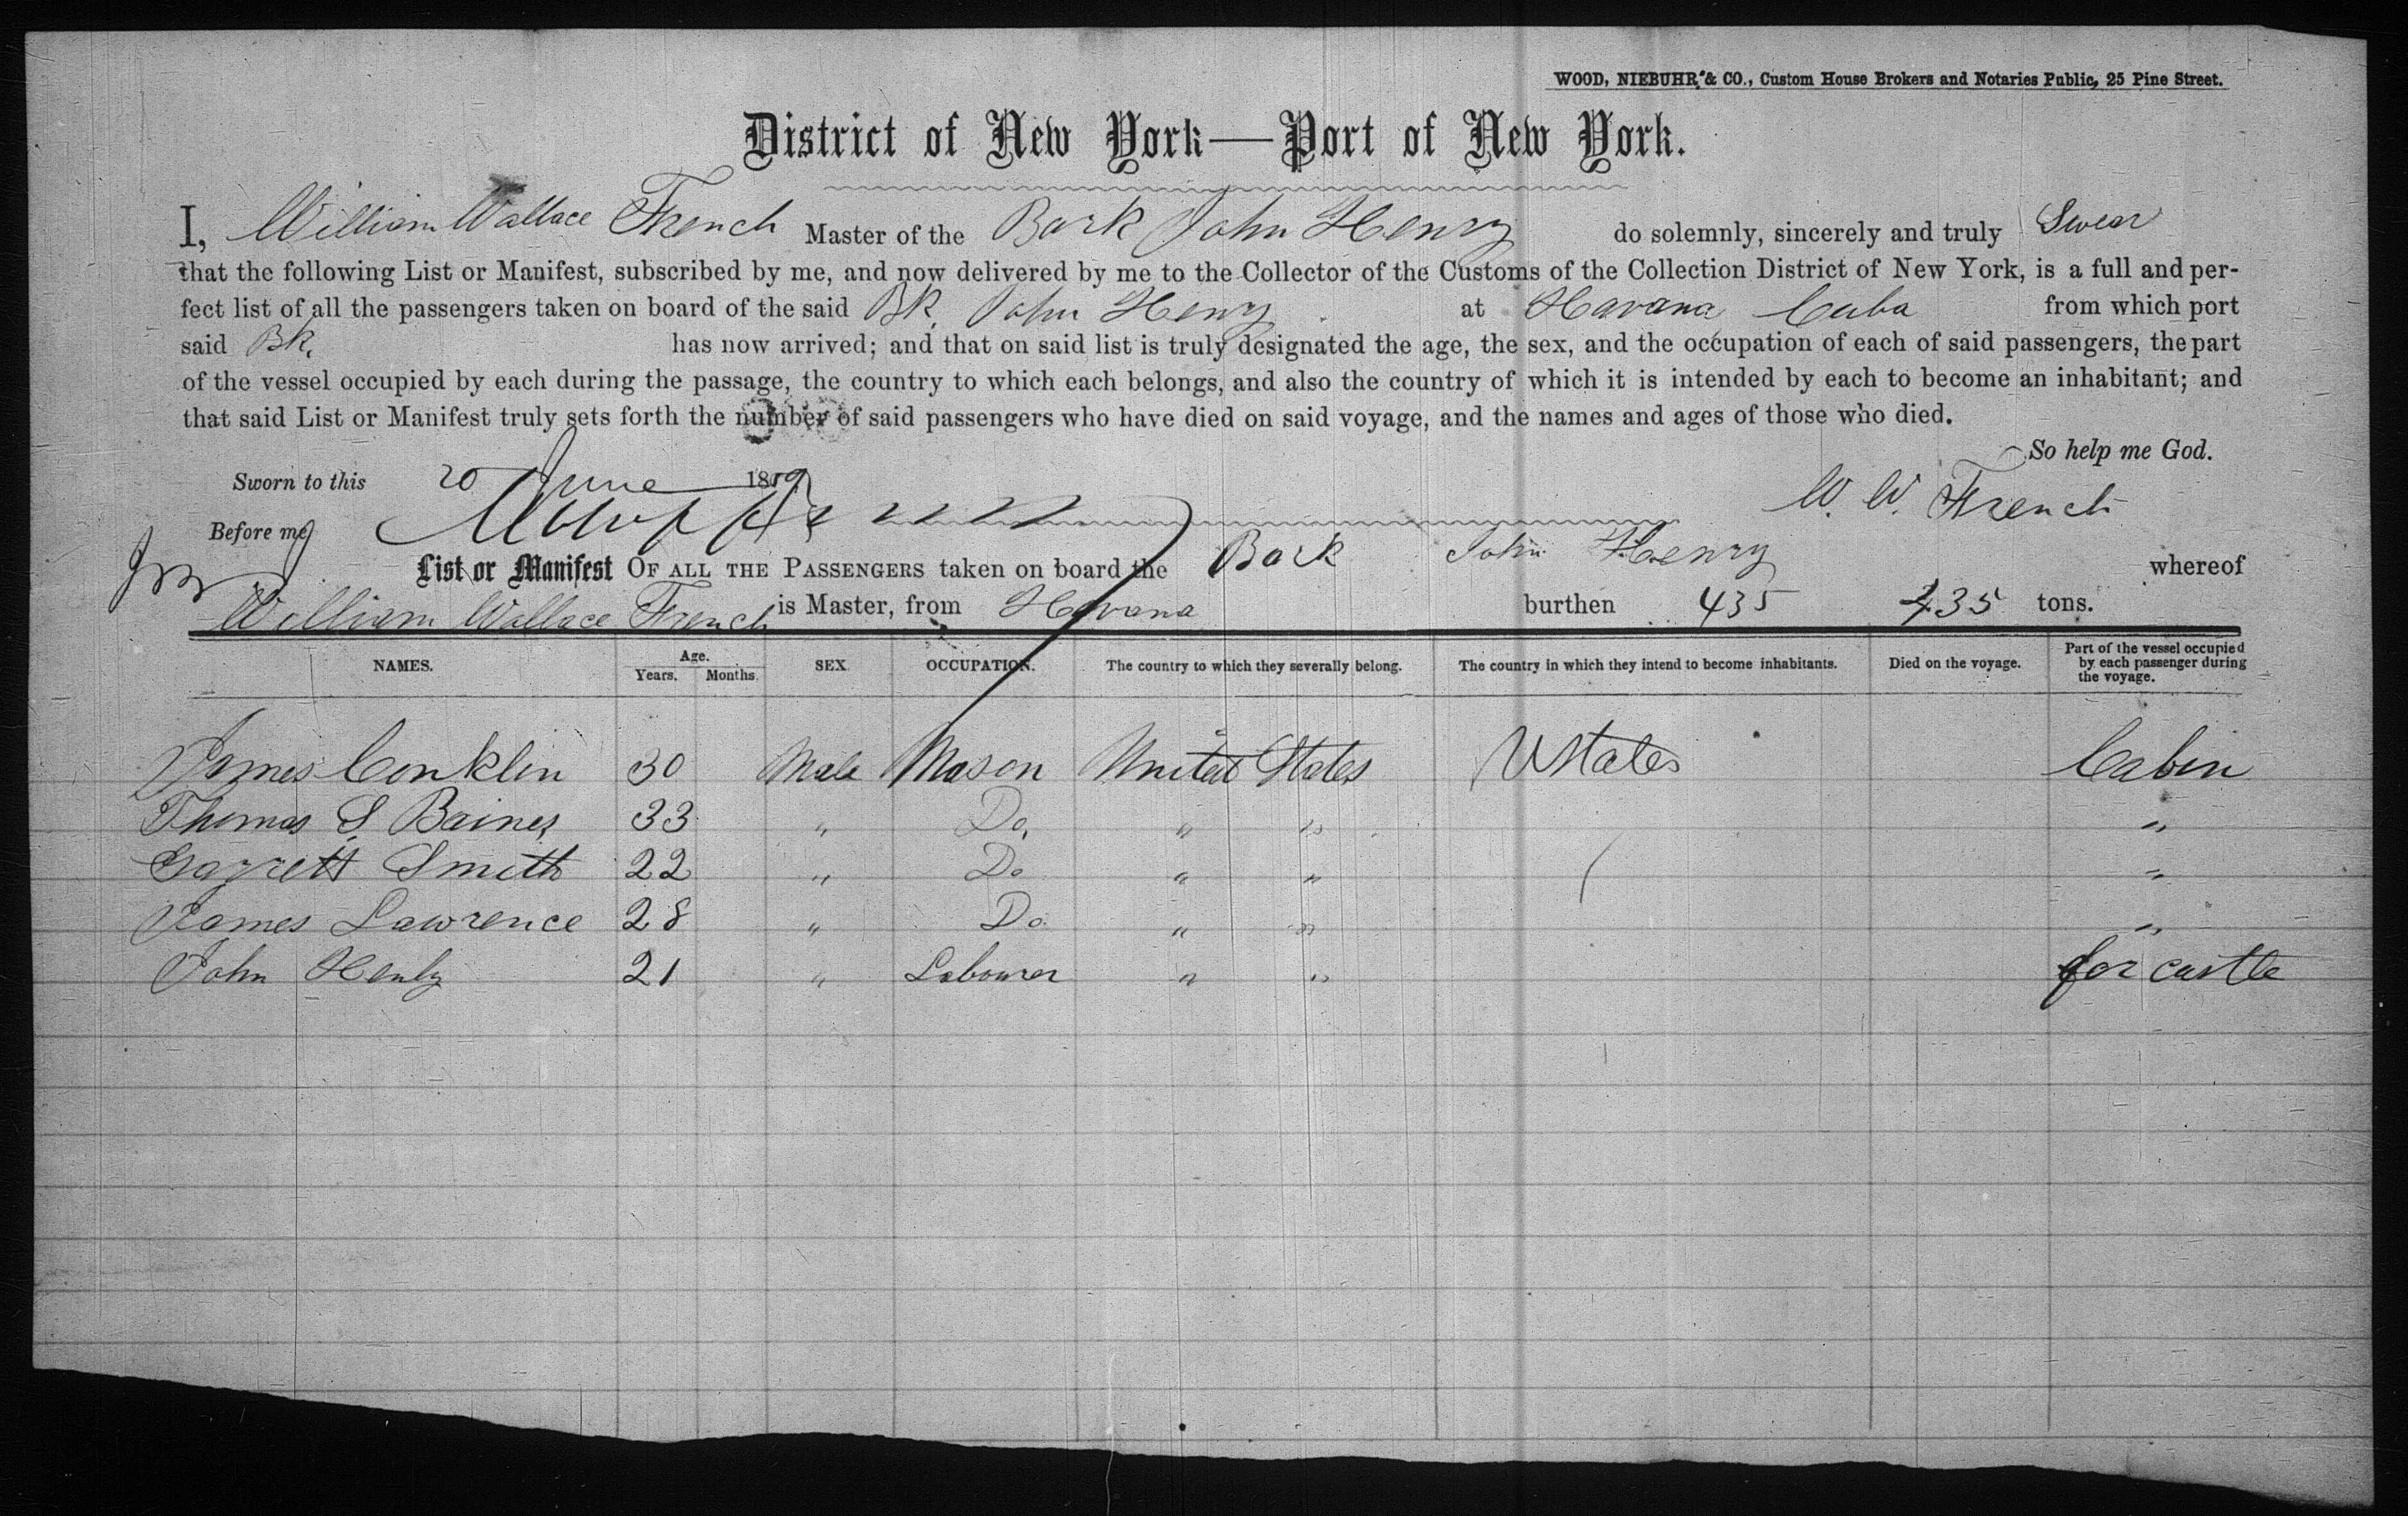 WOOD, NIEBUHR & CO., Custom House Brokers and Notaries Public, 25 Pine Street.
District of New York—Port of New York.
I, William Wallace French Master of the Bark John Henry do solemnly, sincerely and truly Swear
that the following List or Manifest, subscribed by me, and now delivered by me to the Collector of the Customs of the Collection District of New York, is a full and per-
fect list of all the passengers taken on board of the said Bk. John Henry at Havana Cuba from which port
said Bk. has now arrived; and that on said list is truly designated the age, the sex, and the occupation of each of said passengers, the part
of the vessel occupied by each during the passage, the country to which each belongs, and also the country of which it is intended by each to become an inhabitant; and
that said List or Manifest truly sets forth the number of said passengers who have died on said voyage, and the names and ages of those who died.
So help me God.
Sworn to this 20 June W. W. French
Before me
List or Manifest OF ALL THE PASSENGERS taken on board the Bark John Henry whereof
William Wallace French is Master, from Havana burthen 435 435 tons.
NAMES. Age. Years. Months. SEX. OCCUPATION. The country to which they severally belong. The country in which they intend to become inhabitants. Died on the voyage. Part of the vessel occupied by each passenger during the voyage.
James Conklin 30 Male Mason United States UStates Cabin
Thomas S Baines 33 " Do. " " "
Garrett Smith 22 " Do " " "
James Lawrence 28 " Do. " " "
John Henly 21 " Labourer " " for castle